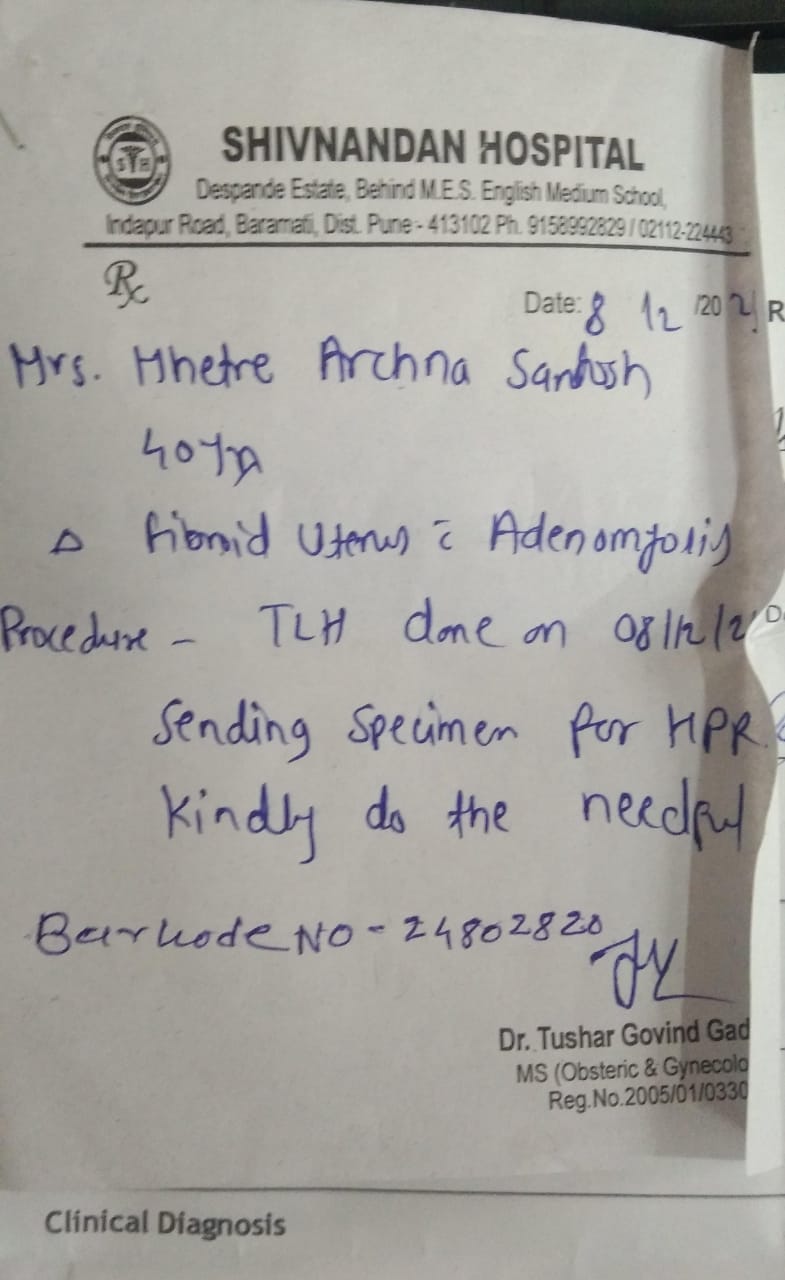 SHIVNANDAN HOSPITAL
S H
Despande Estate, Behind M.E.S. English Medium School,
Indapur Road, Baramati, Dist. Pune - 413102 Ph. 9158992829 / 02112-224443
Rx
Date: 8 12 /2021 R
Mrs. Mhetre Archna Santosh
40 yrs
Δ fibroid Uterus c̄ Adenomyosis
Procedure - TLH done on 08/12/21
Sending Specimen for HPR.
Kindly do the needful
Barkode NO - 24802820
Dr. Tushar Govind Gad
MS (Obsteric & Gynecolo
Reg.No.2005/01/0330
Clinical Diagnosis